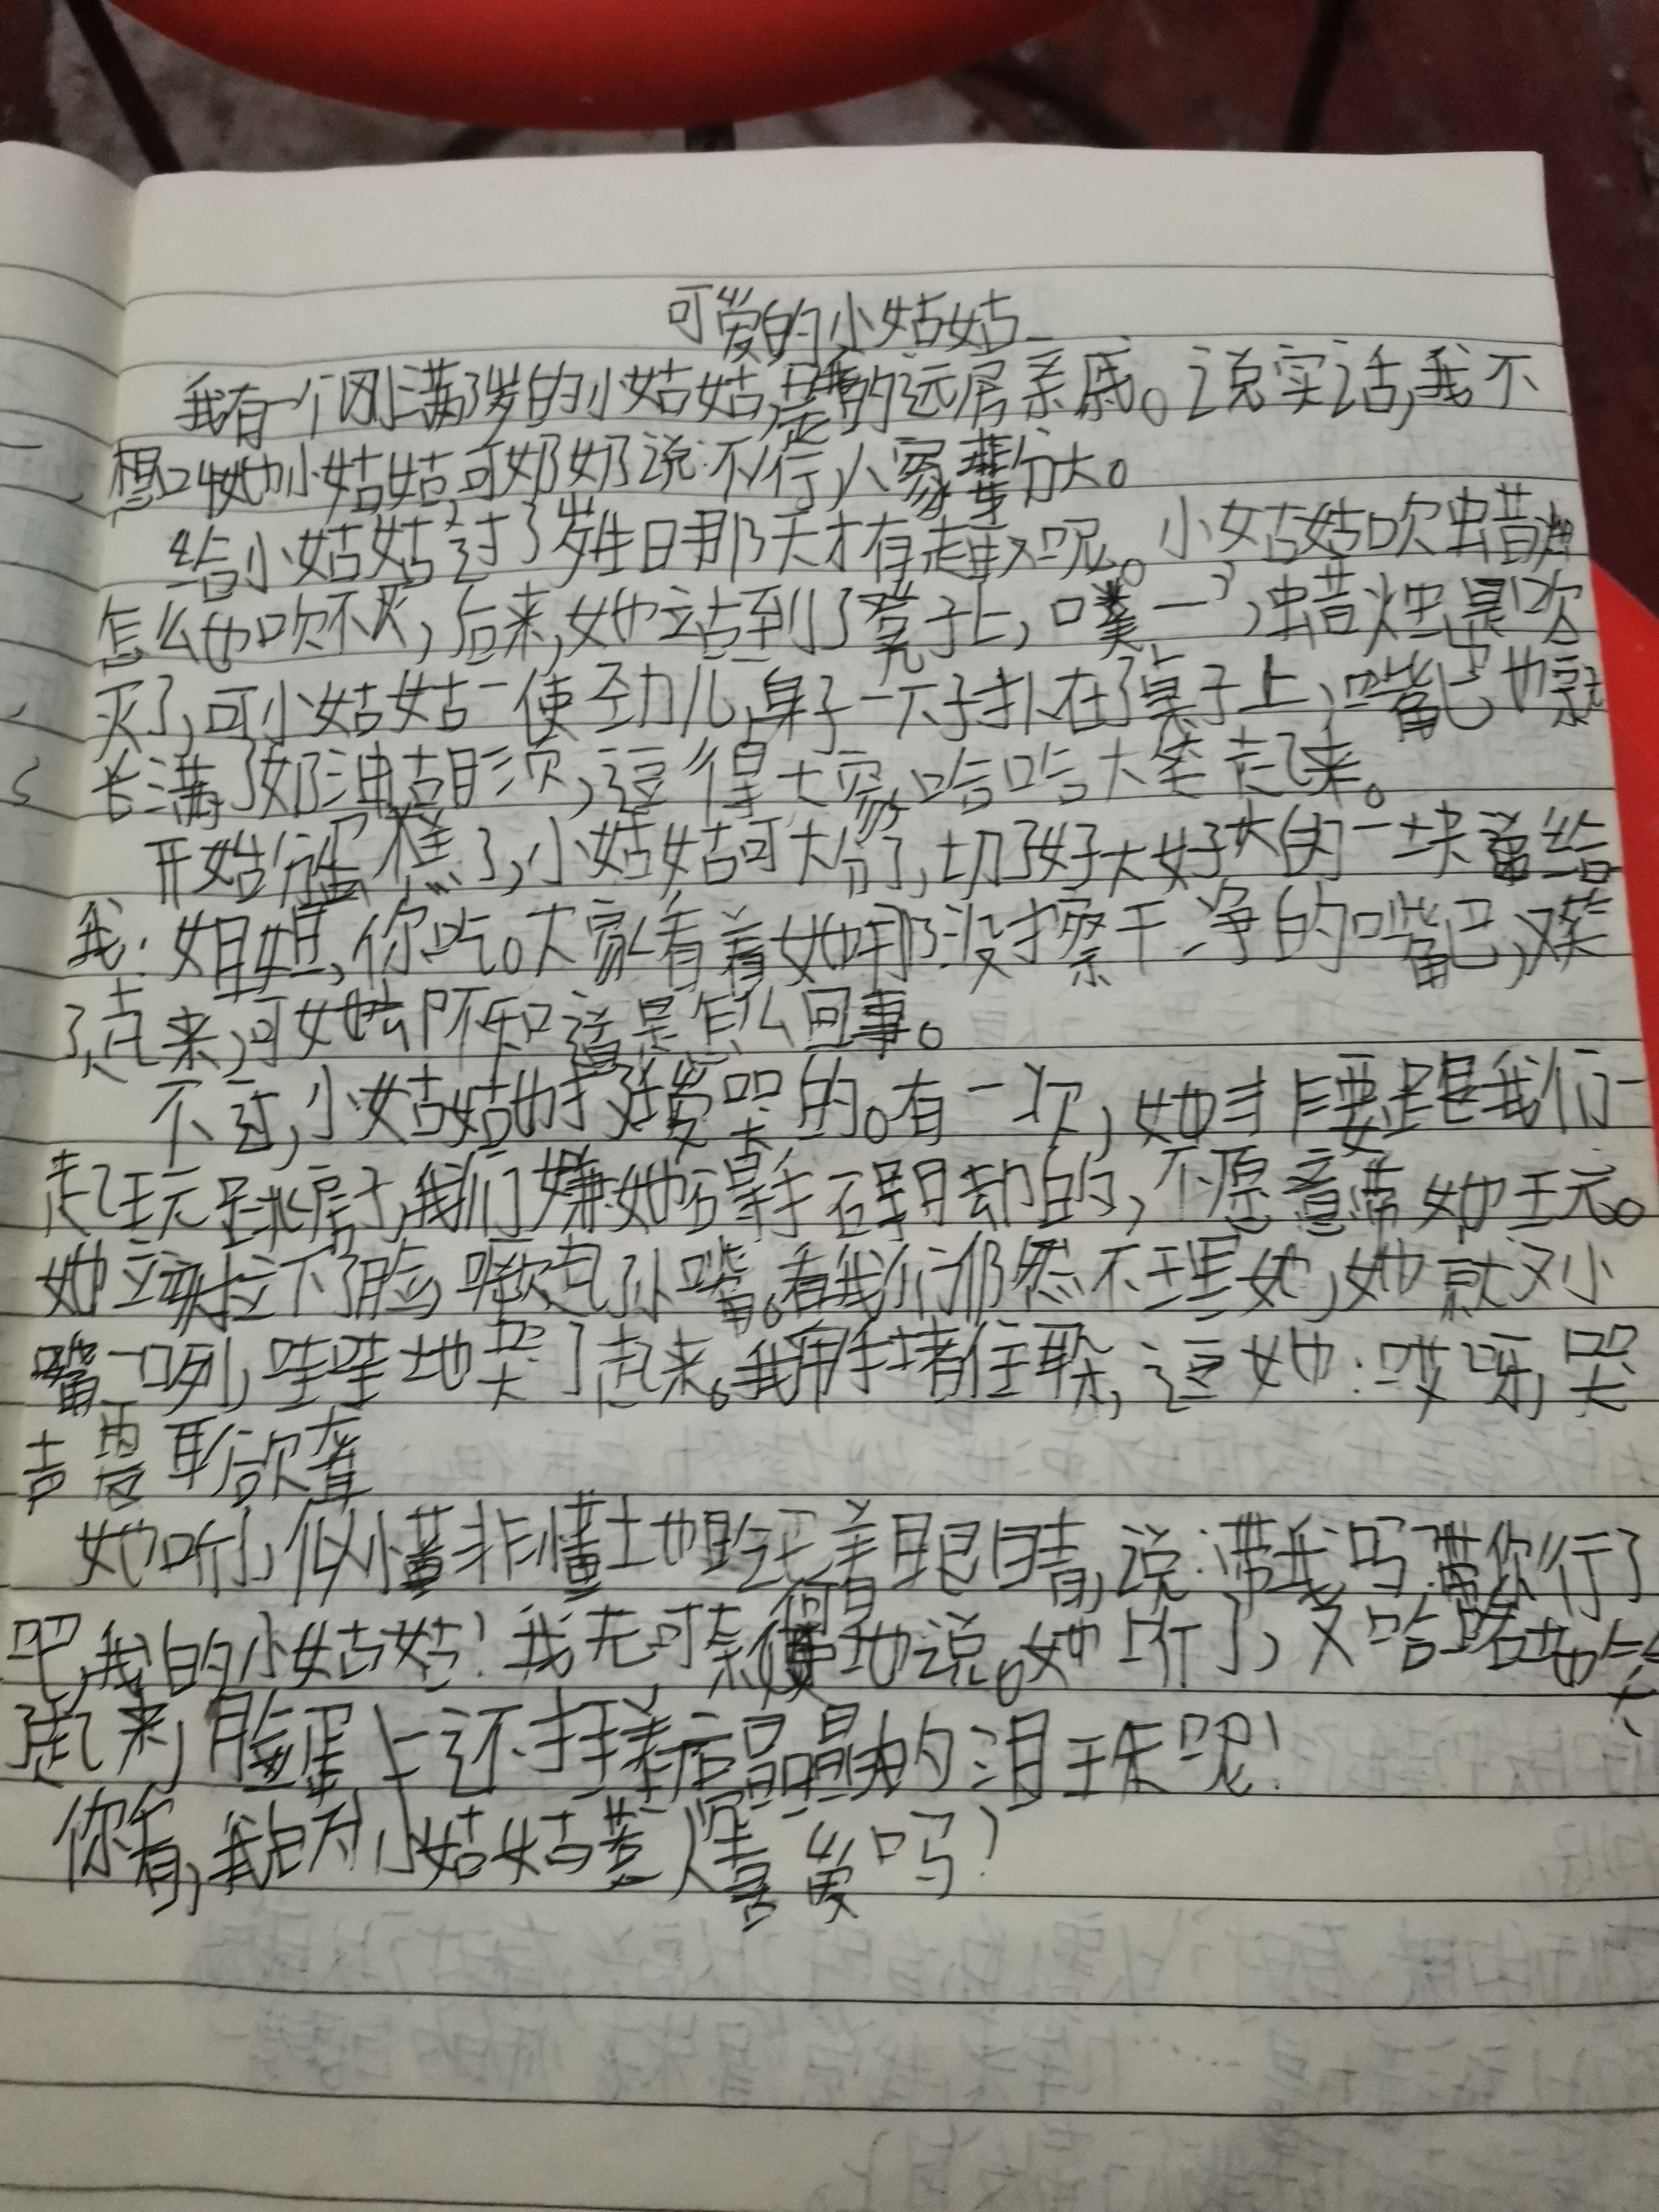 可爱的小姑姑
我有一个刚满3岁的小姑姑,是我的远房亲戚。说实话,我不
想叫她小姑姑可奶奶说:不行,人家辈分大。
给小姑姑过3岁生日那天才有趣呢。小姑姑吹蜡烛
怎么也吹不灭,后来,她站到了凳子上,噗一,蜡烛是吹
灭了,可小姑姑一使劲儿,身子一下子扑在了桌子上,嘴巴也
长满了奶油胡须,逗得大家哈哈大笑起来。
开始分蛋糕了,小姑姑可大份了,切了好大好大的一块端给
我:姐姐,你吃。大家看着她那没擦干净的嘴巴,又笑
了起来,可她却不知道是怎么回事。
不过,小姑姑也挺爱哭的。有一次,她非要跟我们一
起玩跳房子,我们嫌她碍手碍脚的,不愿意带她玩。
她立刻拉下了脸,噘起了小嘴。看我们仍然不理她,她就又小
嘴一咧,哇哇地哭了起来。我用手堵住耳朵,逗她:哎呀,哭
声震耳欲聋
她听了,似懂非懂地眨着眼睛,说:带我吗带你行了
吧,我的小姑姑!我无可奈何地说。她听了,又哈哈地笑
起来,脸蛋上还挂着亮晶晶的泪珠呢!
你看,我的小姑姑惹人喜爱吗?